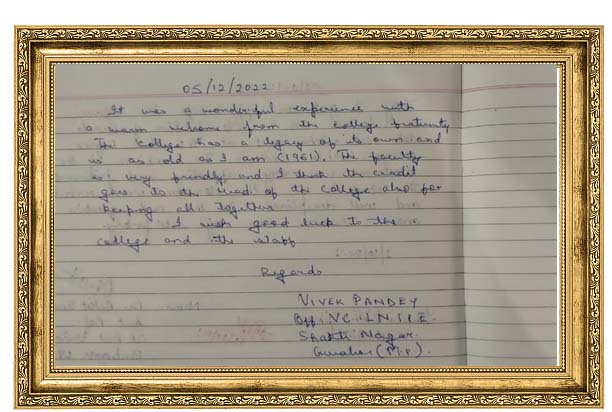 05/12/2022
It was a wonderful experience with
a warm welcome from the college fraternity
The college has a legacy of its own and
is as old as I am (1961). The faculty
is very friendly and I think the credit
goes to the Head of the College also for
keeping all together
I wish good luck to the
college and the staff
Regards
VIVEK PANDEY
Off VC LNIPE
Shakti Nagar
Gwalior (M.P).